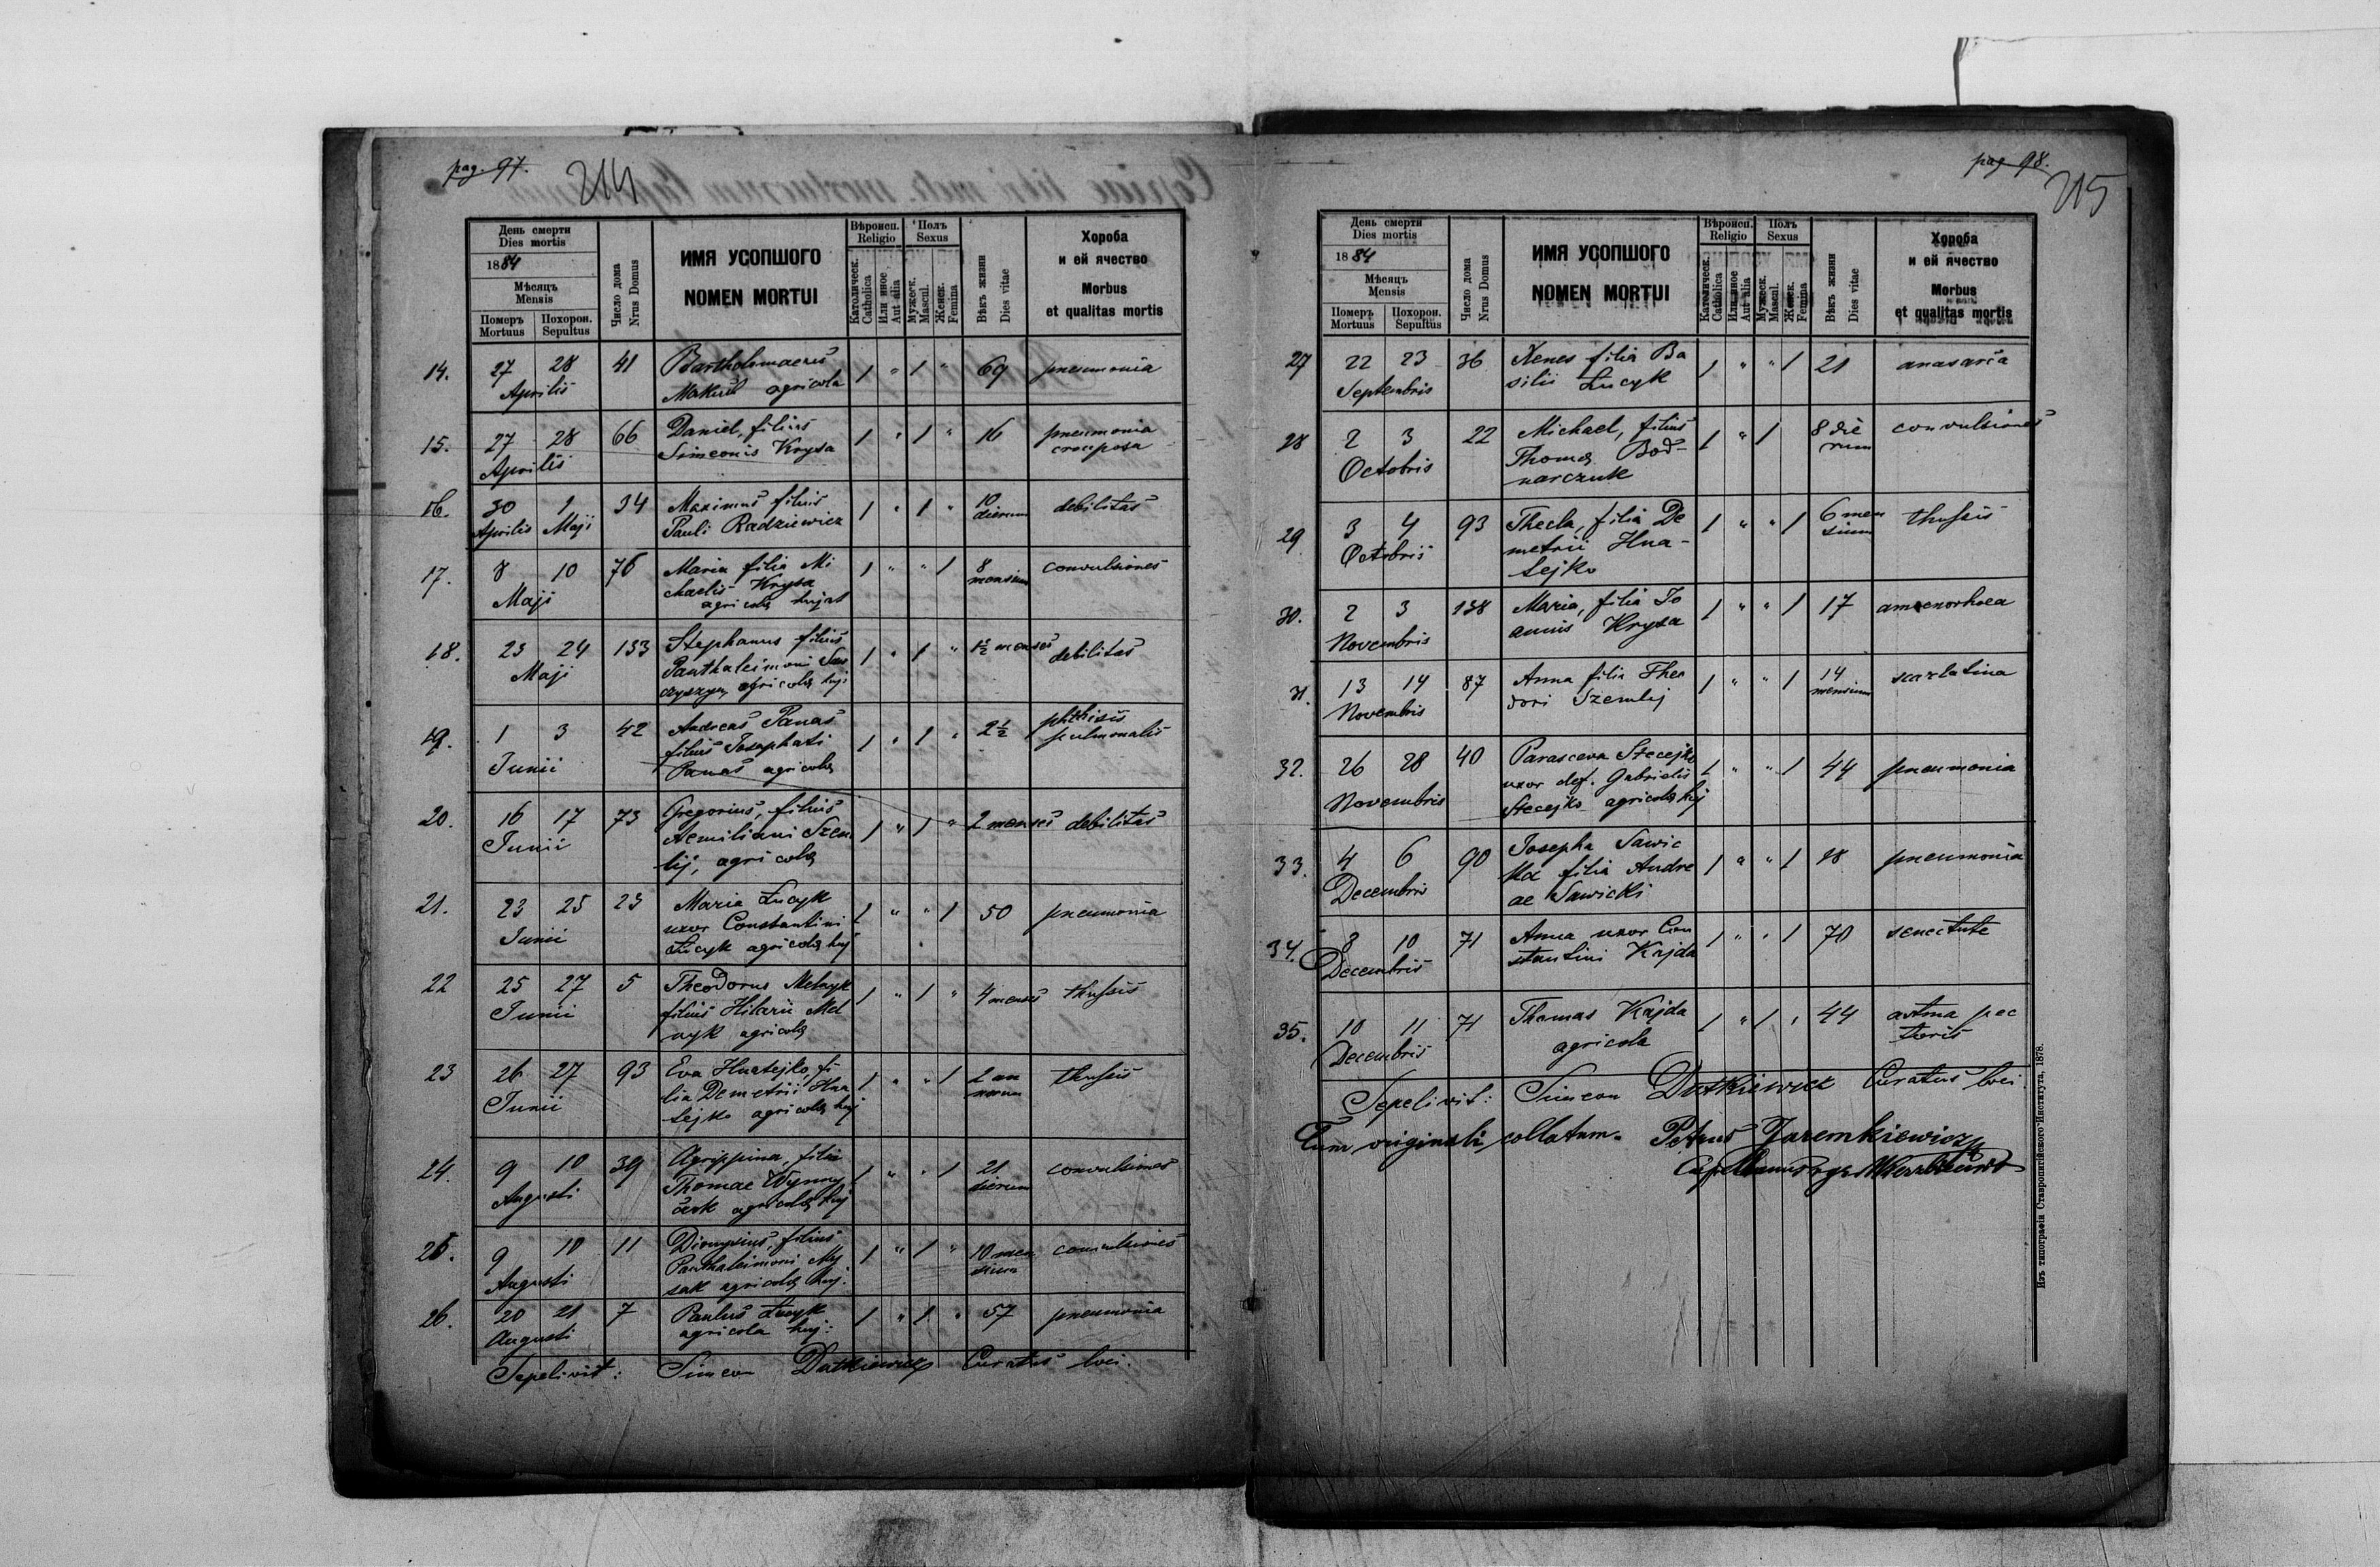 pag. 97.
214
День смерти
Dies mortis
1884
Мѣсяцъ
Mensis
Померъ
Mortuus
Похорон.
Sepultus
Число дома
Nrus Domus
ИМЯ УСОПШОГО
NOMEN MORTUI
Вѣроисп.
Religio
Католическ.
Catholica
Или иное
Aut alia
Полъ
Sexus
Мужеск.
Mascul.
Женск.
Femina
Вѣкъ жизни
Dies vitae
Хороба
и ей ячество
Morbus
et qualitas mortis
14. 27 28 41 Bartholomaeus 1 " 1 " 69 pneumonia
Aprilis agricola
15. 27 28 66 Daniel, filius 1 " 1 " 16 pneumonia
Aprilis Simeonis Krysa crouposa
16. 30 1 34 Maximus filius 1 " 1 " 10 debilitas
Aprilis Maji Pauli Radziewicz dierum
17. 8 10 76 Maria filia Mi 1 " " 1 8 convulsiones
Maji chaelis Krysa mensium
agricolae hujat
18. 23 24 133 Stephanus filius 1 " 1 " 1½ menses debilitas
Maji Panthaleimoni
agricolae huj
19. 1 3 42 Andreas Panas 1 " 1 " 2½ phthisis
Junii filius Josaphati pulmonalis
Panas agricolae
20. 16 17 73 Gregorius, filius 1 " 1 " 2 menses debilitas
Junii Aemiliani Szem
lij, agricolae
21. 23 25 23 Maria Łucyk 1 " " 1 50 pneumonia
Junii uxor Constantini
Łucyk agricolae huj
22 25 27 5 Theodorus Melnyk 1 " 1 " 4 menses thussis
Junii filius Hilarii Mel
nyk agricolae
23 26 27 93 Eva Hnatejko, fi 1 " " 1 2 an thussis
Junii lia Demetrii Hna norum
tejko agricolae huj
24. 9 10 39 Agrippina, filia 1 " " 1 21 convulsiones
Augusti Thomae dierum
agricolae huj
25. 9 10 11 Dionysius, filius 1 " 1 " 10 men convulsiones
Augusti Panthaleimoni My sium
sak agricolae huj.
26. 20 21 7 Paulus Łucyk 1 " 1 " 57 pneumonia
Augusti agricola huj:
Sepelivit: Simeon Dutkiewicz Curatus loci.
pag. 98.
215
День смерти
Dies mortis
1884
Мѣсяцъ
Mensis
Померъ
Mortuus
Похорон.
Sepultus
Число дома
Nrus Domus
ИМЯ УСОПШОГО
NOMEN MORTUI
Вѣроисп.
Religio
Католическ.
Catholica
Или иное
Aut alia
Полъ
Sexus
Мужеск.
Mascul.
Женск.
Femina
Вѣкъ жизни
Dies vitae
Хороба
и ей ячество
Morbus
et qualitas mortis
27 22 23 36 Xenes filia Ba 1 " " 1 21 anasarca
Septembris silii Łucyk
28 2 3 22 Michael, filius 1 " 1 8 die convulsiones
Octobris Thomae Bod- rum
narczuk
29 3 4 93 Thecla, filia De 1 " " 1 6 men thussis
Octobris metrii Hna- sium
tejko
30. 2 3 138 Maria, filia Jo 1 " " 1 17 amoenorhoea
Novembris annis Krysa
31. 13 14 87 Anna filia Theo 1 " " 1 14 scarlatina
Novembris dori Szemlij mensium
32. 26 28 40 Parasceva Stecejko 1 " " 1 44 pneumonia
Novembris uxor def. Gabrielis
Stecejko agricolae huj
33. 4 6 90 Josepha Sawic 1 " " 1 18 pneumonia
Decembris ka filia Andre
ae Sawicki
34. 8 10 71 Anna uxor Con 1 " " 1 70 senectute
Decembris stantini Kajda
35. 10 11 71 Thomas Kajda 1 " 1 " 44 astma pec
Decembris agricola toris
Sepelivit: Simeon Dutkiewicz Curatus loci.
Cum originali collatum. Petrus Jaremkiewicz
Изъ типографіи Ставропигійского Института, 1878.